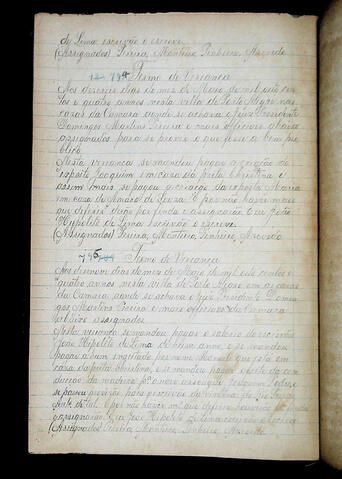 de Lima escrivão o escrevi
(Assignados) Pereira, Monteiro, Pinheiro, Azevedo
Termo de Vereança
Aos dezeseis dias do mez de Maio de mil oito cen
tos e quatro annos nesta villa de Porto Alegre nas
casas da Camara onde se achava o Juiz Presidente
Domingos Martins Pereira e mais officiaes abaixo
assignados para se prover o que fosse a bem pu
blico.
Nesta vereança se mandou pagar a criação do
exposto Joaquim em casa da preta Christina e
assim mais se pagou a criação da exposta Maria
em casa de Amaro de Souza. E por não haver mais
que deferir deu por finda e assignarão Eu João
Hypolito de Lima escrivão o escrevi
(Assignados) Pereira, Monteiro, Pinheiro, Azevedo
Termo de Vereança
Aos dias do mez de Maio de mil oito centos e
quatro annos nesta villa de Porto Alegre em as casas
da Camara, onde se achava o Juiz Presidente Domin
gos Martins Pereira e mais officiaes da Camara
abaixo assignados.
Nesta vereança se mandou pagar o salario do escrivão
João Hipolito de Lima de hum anno, e se mandou
pagar a hum engeitado por nome Manoel que está em
casa da preta Christina, e se mandou pagar o frete da con
ducção da madeira
se passou provisão para escrivão da
de tal. E por não haver mais que deferir
assignarão. Eu João Hipolito de Lima escrivão o escrevi
(Assignados) Pereira, Monteiro, Pinheiro, Azevedo